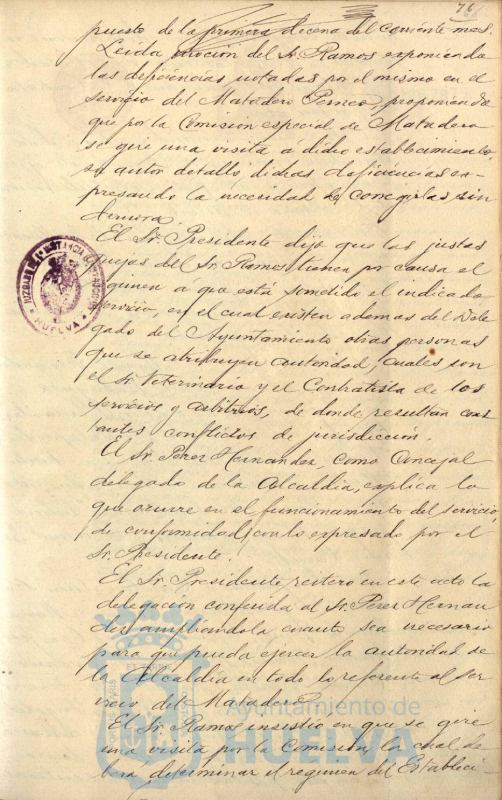 76
puesto de la primera decena del corriente mes.
Leida mocion del Sr. Ramos exponiendo
las deficiencias notadas por el mismo en el
servicio del Matadero Perneo, proponiendo
que por la Comisión especial de Matadero
se gire una visita a dicho establecimiento
su autor detalló dichas deficiencias ex-
presando la necesidad de corregirlas sin
demora.
El Sr. Presidente dijo que las justas
quejas del Sr. Ramos tienen por causa el
regimen a que está sometido el indicado
servicio, en el cual existen ademas del Dele
gado del Ayuntamiento otras personas
que se atribuyen autoridad, cuales son
el Sr. Veterinario y el Contratista de los
servicios y arbitrios, de donde resultan cons
tantes conflictos de jurisdicción.
El Sr. Perez Hernandez, como Concejal
delegado de la Alcaldia, explica lo
que ocurre en el funcionamiento del servicio
de conformidad con lo expresado por el
Sr. Presidente.
El Sr. Presidente reiteró en este acto la
delegación conferida al Sr. Perez Hernan
dez ampliandola cuanto sea necesario
para que pueda ejercer la autoridad de
la Alcaldia en todo lo referente al ser
vicio del Matadero.
El Sr. Ramos insistio en que se gire
una visita por la Comision, la cual de
berá determinar el regimen del Estableci-
HUELVA
Ayuntamiento de
HUELVA